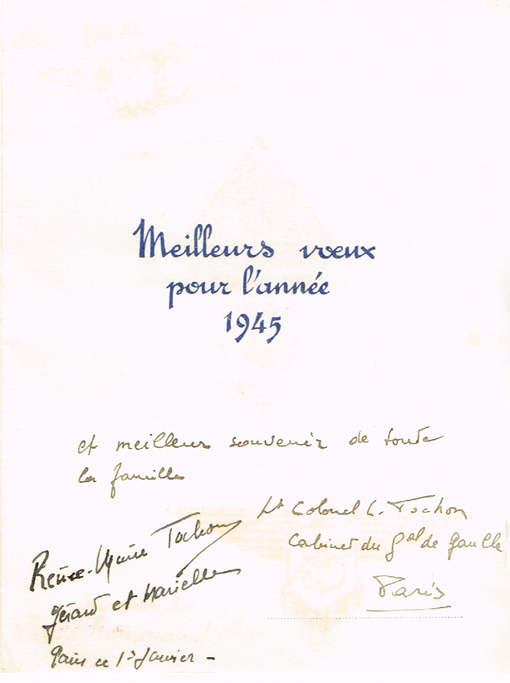 Meilleurs vœux
pour l'année
1945
et meilleur souvenir de toute
la famille
Lt Colonel L. Tochon
Cabinet du Gal de Gaulle
Paris
Reine-Marie Tochon
Gérard et Marielle
Paris ce 1er Janvier -